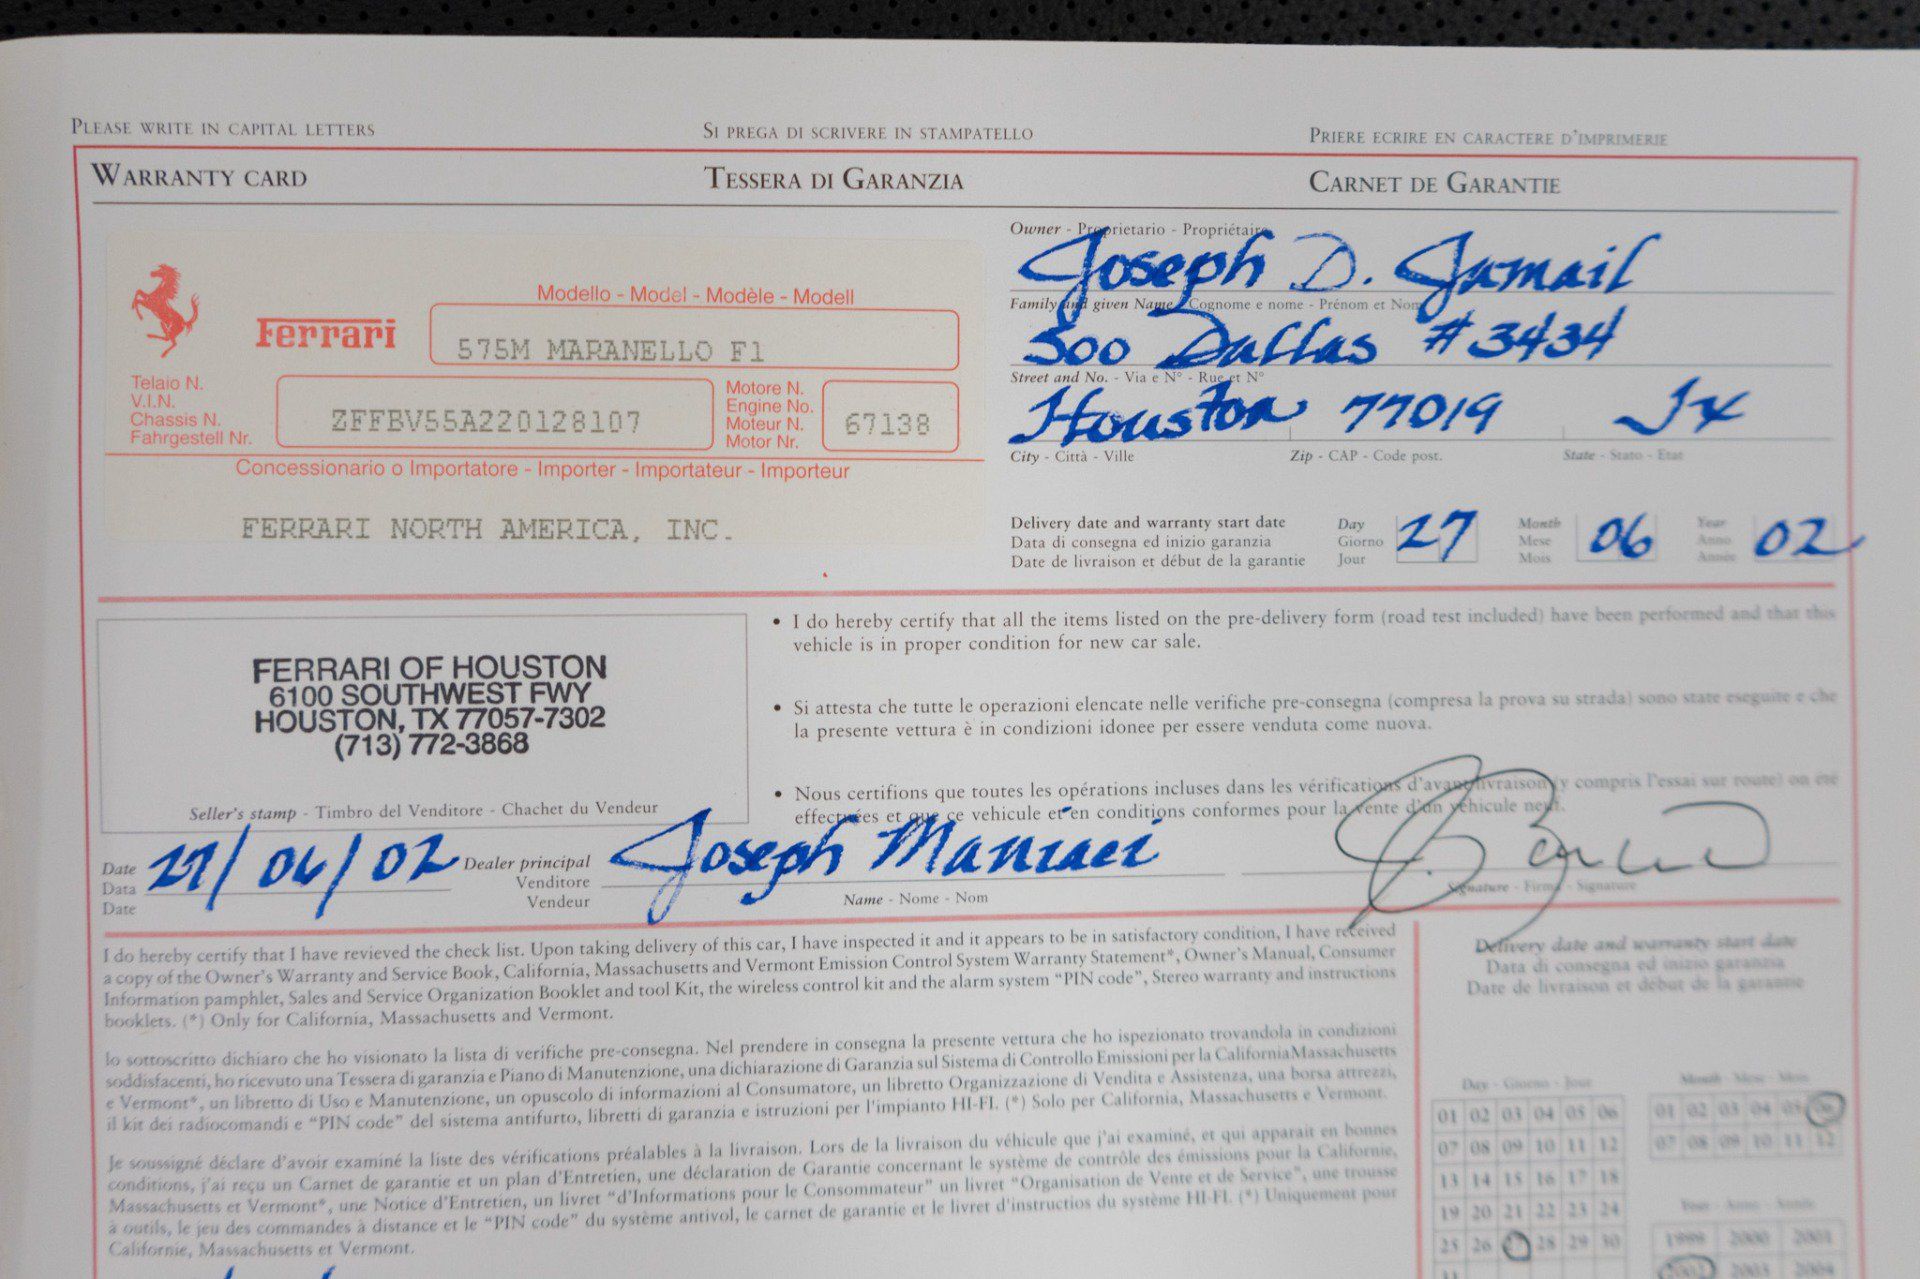 PLEASE WRITE IN CAPITAL LETTERS
SI PREGA DI SCRIVERE IN STAMPATELLO
PRIERE ECRIRE EN CARACTERE D'IMPRIMERIE
WARRANTY CARD
TESSERA DI GARANZIA
CARNET DE GARANTIE
Modello - Model - Modèle - Modell
Ferrari
575M MARANELLO F1
Telaio N.
V.I.N.
Chassis N.
Fahrgestell Nr.
ZFFBV55A220128107
Motore N.
Engine No.
Moteur N.
Motor Nr.
67138
Concessionario o Importatore - Importer - Importateur - Importeur
FERRARI NORTH AMERICA, INC.
Owner - Proprietario - Propriétaire
Joseph D. Jamail
Family and given Name - Cognome e nome - Prénom et Nom
500 Dallas #3434
Street and No. - Via e N° - Rue et N°
Houston 77019 Tx
City - Città - Ville
Zip - CAP - Code post.
State - Stato - Etat
Delivery date and warranty start date
Data di consegna ed inizio garanzia
Date de livraison et début de la garantie
Day
Giorno
Jour
27
Month
Mese
Mois
06
Year
Anno
Année
02
FERRARI OF HOUSTON
6100 SOUTHWEST FWY
HOUSTON, TX 77057-7302
(713) 772-3868
Seller's stamp - Timbro del Venditore - Chachet du Vendeur
• I do hereby certify that all the items listed on the pre-delivery form (road test included) have been performed and that this
vehicle is in proper condition for new car sale.
• Si attesta che tutte le operazioni elencate nelle verifiche pre-consegna (compresa la prova su strada) sono state eseguite e che
la presente vettura è in condizioni idonee per essere venduta come nuova.
• Nous certifions que toutes les opérations incluses dans les vérifications d'avant livraison (y compris l'essai sur route) on été
effectuées et que ce vehicule et en conditions conformes pour la vente d'un véhicule neuf.
Date
Data
Date
27/06/02
Dealer principal
Venditore
Vendeur
Joseph Maniaci
Name - Nome - Nom
Signature - Firma - Signature
I do hereby certify that I have revieved the check list. Upon taking delivery of this car, I have inspected it and it appears to be in satisfactory condition, I have received
a copy of the Owner's Warranty and Service Book, California, Massachusetts and Vermont Emission Control System Warranty Statement*, Owner's Manual, Consumer
Information pamphlet, Sales and Service Organization Booklet and tool Kit, the wireless control kit and the alarm system “PIN code”, Stereo warranty and instructions
booklets. (*) Only for California, Massachusetts and Vermont.
Io sottoscritto dichiaro che ho visionato la lista di verifiche pre-consegna. Nel prendere in consegna la presente vettura che ho ispezionato trovandola in condizioni
soddisfacenti, ho ricevuto una Tessera di garanzia e Piano di Manutenzione, una dichiarazione di Garanzia sul Sistema di Controllo Emissioni per la CaliforniaMassachusetts
e Vermont*, un libretto di Uso e Manutenzione, un opuscolo di informazioni al Consumatore, un libretto Organizzazione di Vendita e Assistenza, una borsa attrezzi,
il kit dei radiocomandi e “PIN code” del sistema antifurto, libretti di garanzia e istruzioni per l'impianto HI-FI. (*) Solo per California, Massachusetts e Vermont.
Je soussigné déclare d'avoir examiné la liste des vérifications préalables à la livraison. Lors de la livraison du véhicule que j'ai examiné, et qui apparait en bonnes
conditions, j'ai reçu un Carnet de garantie et un plan d'Entretien, une déclaration de Garantie concernant le système de contrôle des émissions pour la Californie,
Massachusetts et Vermont*, une Notice d'Entretien, un livret “d'Informations pour le Consommateur” un livret “Organisation de Vente et de Service”, une trousse
à outils, le jeu des commandes à distance et le “PIN code” du système antivol, le carnet de garantie et le livret d'instructios du système HI-FI. (*) Uniquement pour
Californie, Massachusetts et Vermont.
Delivery date and warranty start date
Data di consegna ed inizio garanzia
Date de livraison et début de la garantie
Day - Giorno - Jour
01 02 03 04 05 06
07 08 09 10 11 12
13 14 15 16 17 18
19 20 21 22 23 24
25 26 28 29 30
31
Month - Mese - Mois
01 02 03 04 05 06
07 08 09 10 11 12
Year - Anno - Année
1999 2000 2001
2002 2003 2004